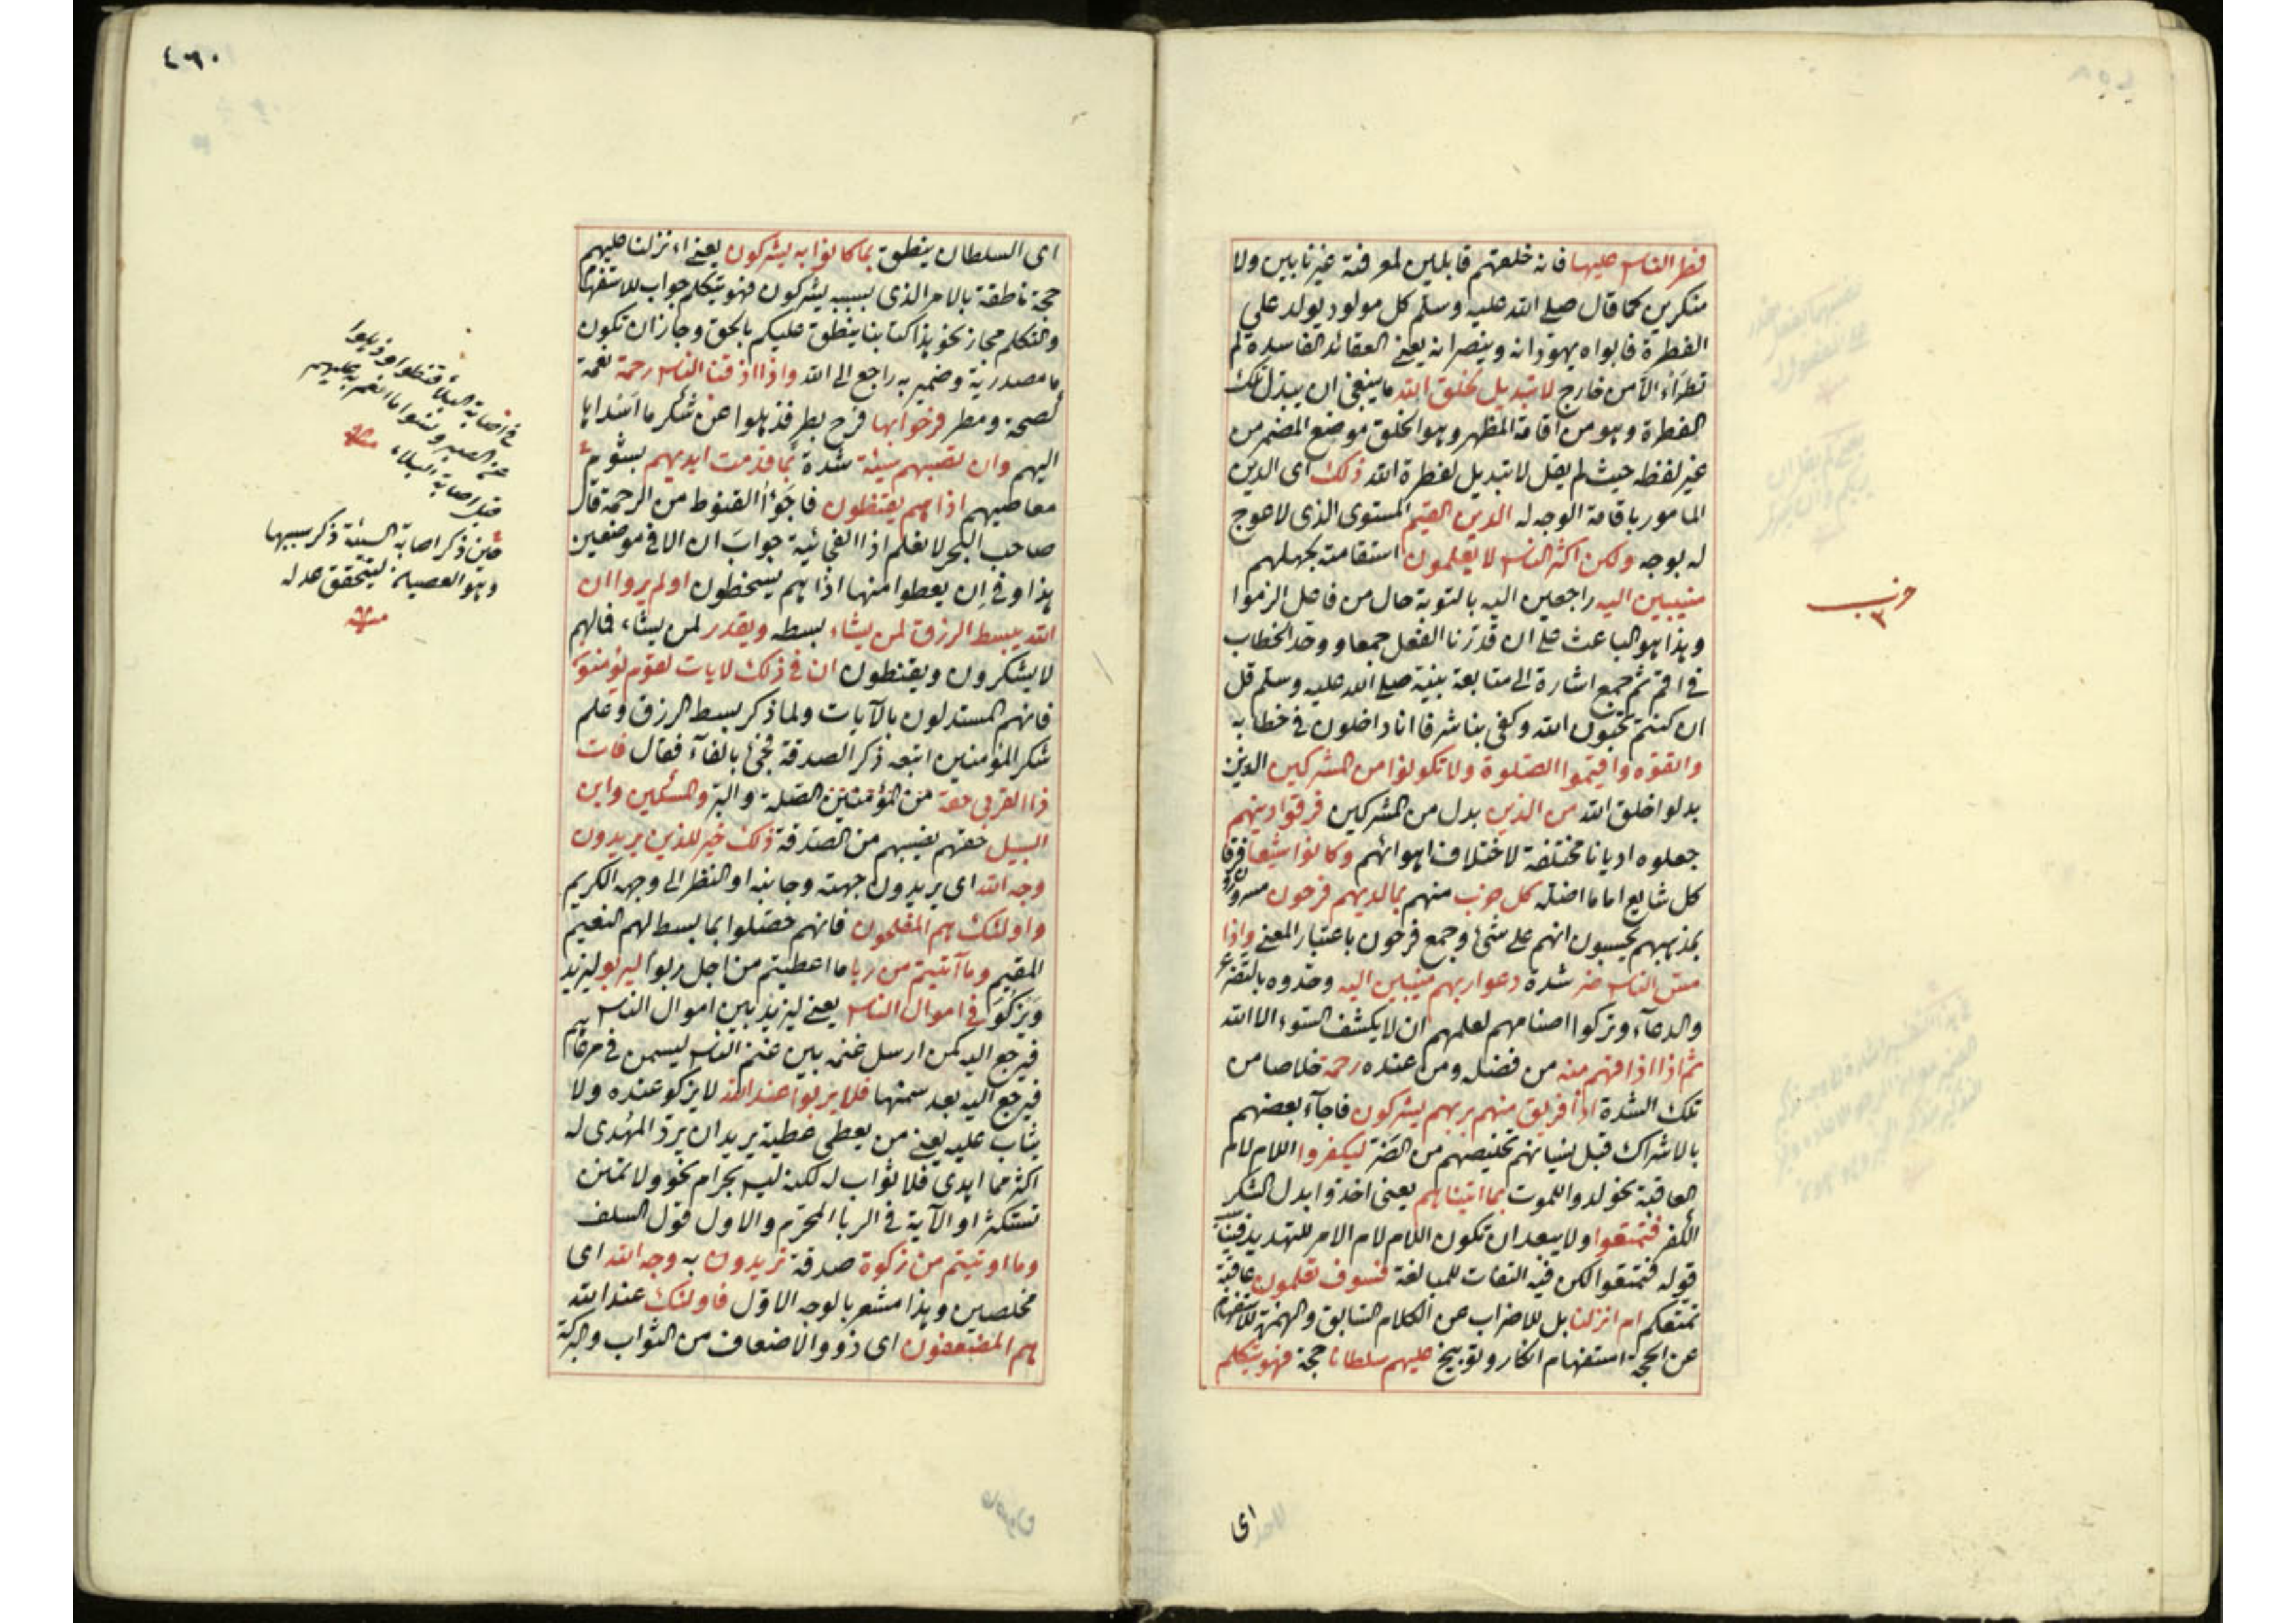 فطر الناس عليها فانه خلقهم قابلين لمعرفته غير نابين ولا
منكرين كما قال صلى الله عليه وسلم كل مولود يولد على
الفطرة فابواه يهودانه وينصرانه يعني العقائد الفاسدة لم
تطرأ الا من خارج لا تبديل لخلق الله ما ينبغي ان يبدل تلك
الفطرة وهو من اقامة المظهر وهو الخلق موضع المضمر من
غير لفظه حيث لم يقل لا تبديل لفطرة الله ذلك اى الدين
المامور باقامة الوجه له الدين القيم المستوى الذى لا عوج
له بوجه ولكن اكثر الناس لا يعلمون استقامته بجهلهم
منيبين اليه راجعين اليه بالتوبة حال من فاعل الزموا
وهذا هو الباعث على ان قدرنا الفعل جمعا ووحد الخطاب
في اقم ثم جمع اشارة الى متابعة نبيه صلى الله عليه وسلم قل
ان كنتم تحبون الله وكفى بنا شرفا انا داخلون في خطابه
واتقوه واقيموا الصلوة ولا تكونوا من المشركين الذين
بدلوا خلق الله من الذين بدل من المشركين فرقوا دينهم
جعلوه اديانا مختلفة لاختلاف اهوائهم وكانوا شيعا فرقا
كل شايع اماما اضله كل حزب منهم بما لديهم فرحون مسرورون
بمذهبهم يحسبون انهم على شئ وجمع فرحون باعتبار المعنى واذا
مس الناس ضر شدة دعوا ربهم منيبين اليه وحدوه بالتضرع
والدعآء وتركوا اصنامهم لعلمهم ان لا يكشف السوء الا الله
ثم اذا اذاقهم منه من فضله ومن عنده رحمة خلاصا من
تلك الشدة اذا فريق منهم بربهم يشركون فاجآء بعضهم
بالاشراك قبل نسيانهم تخليصهم من الضر ليكفروا اللام لام
العاقبة نحو لدوا للموت بما اتيناهم يعنى اخذوا بدل الشكر
الكفر فتمتعوا ولا يبعد ان تكون اللام لام الامر للتهديد
قوله فتمتعوا لكن فيه التفات للمبالغة فسوف تعلمون عاقبة
تمتعكم ام انزلنا بل للاضراب عن الكلام السابق والهمزة للاستفهام
عن الحجة استفهام انكار وتوبيخ عليهم سلطانا حجة فهو يتكلم
اى
حزب
٤٦٠
اى السلطان ينطق بما كانوا به يشركون يعنى اء نزلنا عليهم
حجة ناطقة بالامر الذى بسببه يشركون فهو يتكلم جواب للاستفهام
والتكلم مجاز نحو هذا كتابنا ينطق عليكم بالحق وجاز ان تكون
ما مصدرية وضمير به راجع الى الله واذا اذقنا الناس رحمة نعمة
كصحة ومطر فرحوا بها فرح بطر فذهلوا عن شكر ما اسداها
اليهم وان تصبهم سيئة شدة بما قدمت ايديهم بشوم
معاصيهم اذا هم يقنطون فاجؤا القنوط من الرحمة قال
صاحب البحر لا نعلم اذا الفجائية جواب ان الا في موضعين
هذا وفي ان يعطوا منها اذا هم يسخطون اولم يروا ان
الله يبسط الرزق لمن يشاء بسطه ويقدر لمن يشاء فمالهم
لا يشكرون ويقنطون ان في ذلك لايات لقوم يؤمنون
فانهم المستدلون بالآيات ولما ذكر بسط الرزق وعلم
شكر المؤمنين اتبعه ذكر الصدقة فجئ بالفآء فقال فات
ذا القربى حقه من المؤمنين الصلة والبر والمسكين وابن
السبيل حقهم نصيبهم من الصدقة ذلك خير للذين يريدون
وجه الله اى يريدون جهته وجانبه او النظر الى وجهه الكريم
واولئك هم المفلحون فانهم حصلوا بما بسط لهم النعيم
المقيم وما آتيتم من ربا ما اعطيتم من اجل ربوا ليربو ليزيد
ويزكو في اموال الناس يعنى ليزيد بين اموال الناس
فيرجع اليه كمن ارسل غنمه بين غنم الناس ليسمن في مرعاهم
فيرجع اليه بعد سمنها فلا يربوا عند الله لا يزكو عنده ولا
يثاب عليه يعنى من يعطى عطية يريد ان يرد المهدى له
اكثر مما اهدى فلا ثواب له لكنه ليس بحرام نحو ولا تمنن
تستكثر او الآية في الربا المحرم والاول قول السلف
وما اوتيتم من زكوة صدقة تريدون به وجه الله اى
مخلصين وهذا مشعر بالوجه الاول فاولئك عند الله
هم المضعفون اى ذووا الاضعاف من الثواب والبركة
عن الصبر ونسوا ما انعم به عليهم
قبل اصابة البلاء
حين ذكر اصابة السيئة ذكر سببها
وهو العصيان ليتحقق عدله